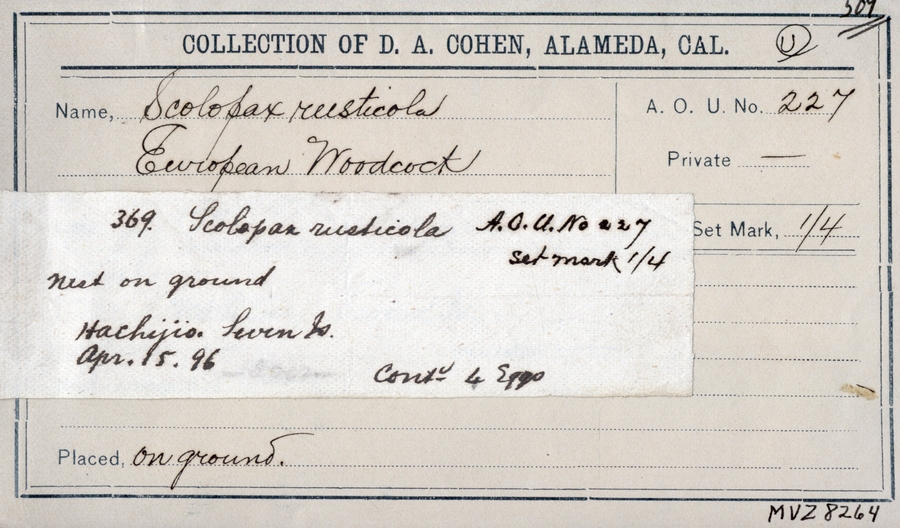 509
COLLECTION OF D. A. COHEN, ALAMEDA, CAL. U
Name, Scolopax rusticola
European Woodcock
A. O. U. No. 227
Private —
Set Mark, 1/4
369. Scolopax rusticola A.O.U. No 227
set mark 1/4
nest on ground
Hachijio. Seven Is.
Apr. 15. 96
Contd 4 Eggs
Placed, on ground.
MVZ 8264